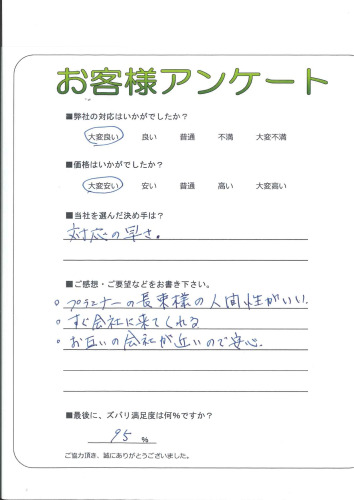 お客様アンケート
■弊社の対応はいかがでしたか?
大変良い 良い 普通 不満 大変不満
■価格はいかがでしたか?
大変安い 安い 普通 高い 大変高い
■当社を選んだ決め手は?
対応の早さ。
■ご感想・ご要望などをお書き下さい。
○プランナーの長束様の人間性がいい
○すぐ会社に来てくれる
○お互いの会社が近いので安心
■最後に、ズバリ満足度は何%ですか?
95 %
ご協力頂き、誠にありがとうございました。